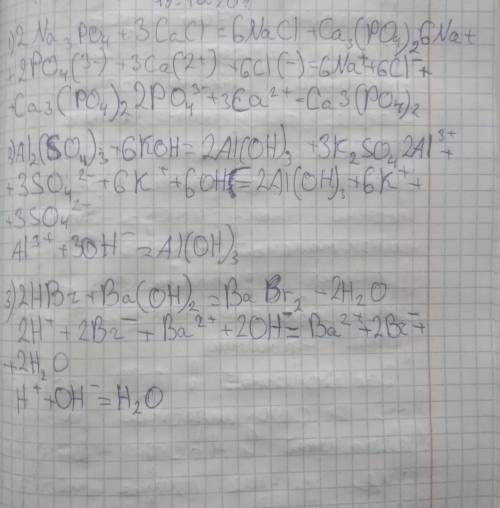 1)2Na3PO4 + 3CaCl = 6NaCl + Ca3(PO4)2 6Na+
+2PO4(3-) + 3Ca(2+) + 6Cl(-) = 6Na+ + 6Cl- +
+Ca3(PO4)2 2PO4 3- + 3Ca2+ = Ca3(PO4)2
2)Al2(SO4)3 + 6KOH = 2Al(OH)3 + 3K2SO4 2Al3+ +
+3SO4 2- + 6K+ + 6OH- = 2Al(OH)3 + 6K+ +
+3SO4 2-
Al3+ + 3OH- = Al(OH)3
3)2HBr + Ba(OH)2 = BaBr2 - 2H2O
2H+ + 2Br- + Ba2+ + 2OH- = Ba2+ + 2Br- +
+2H2O
H+ + OH- = H2O